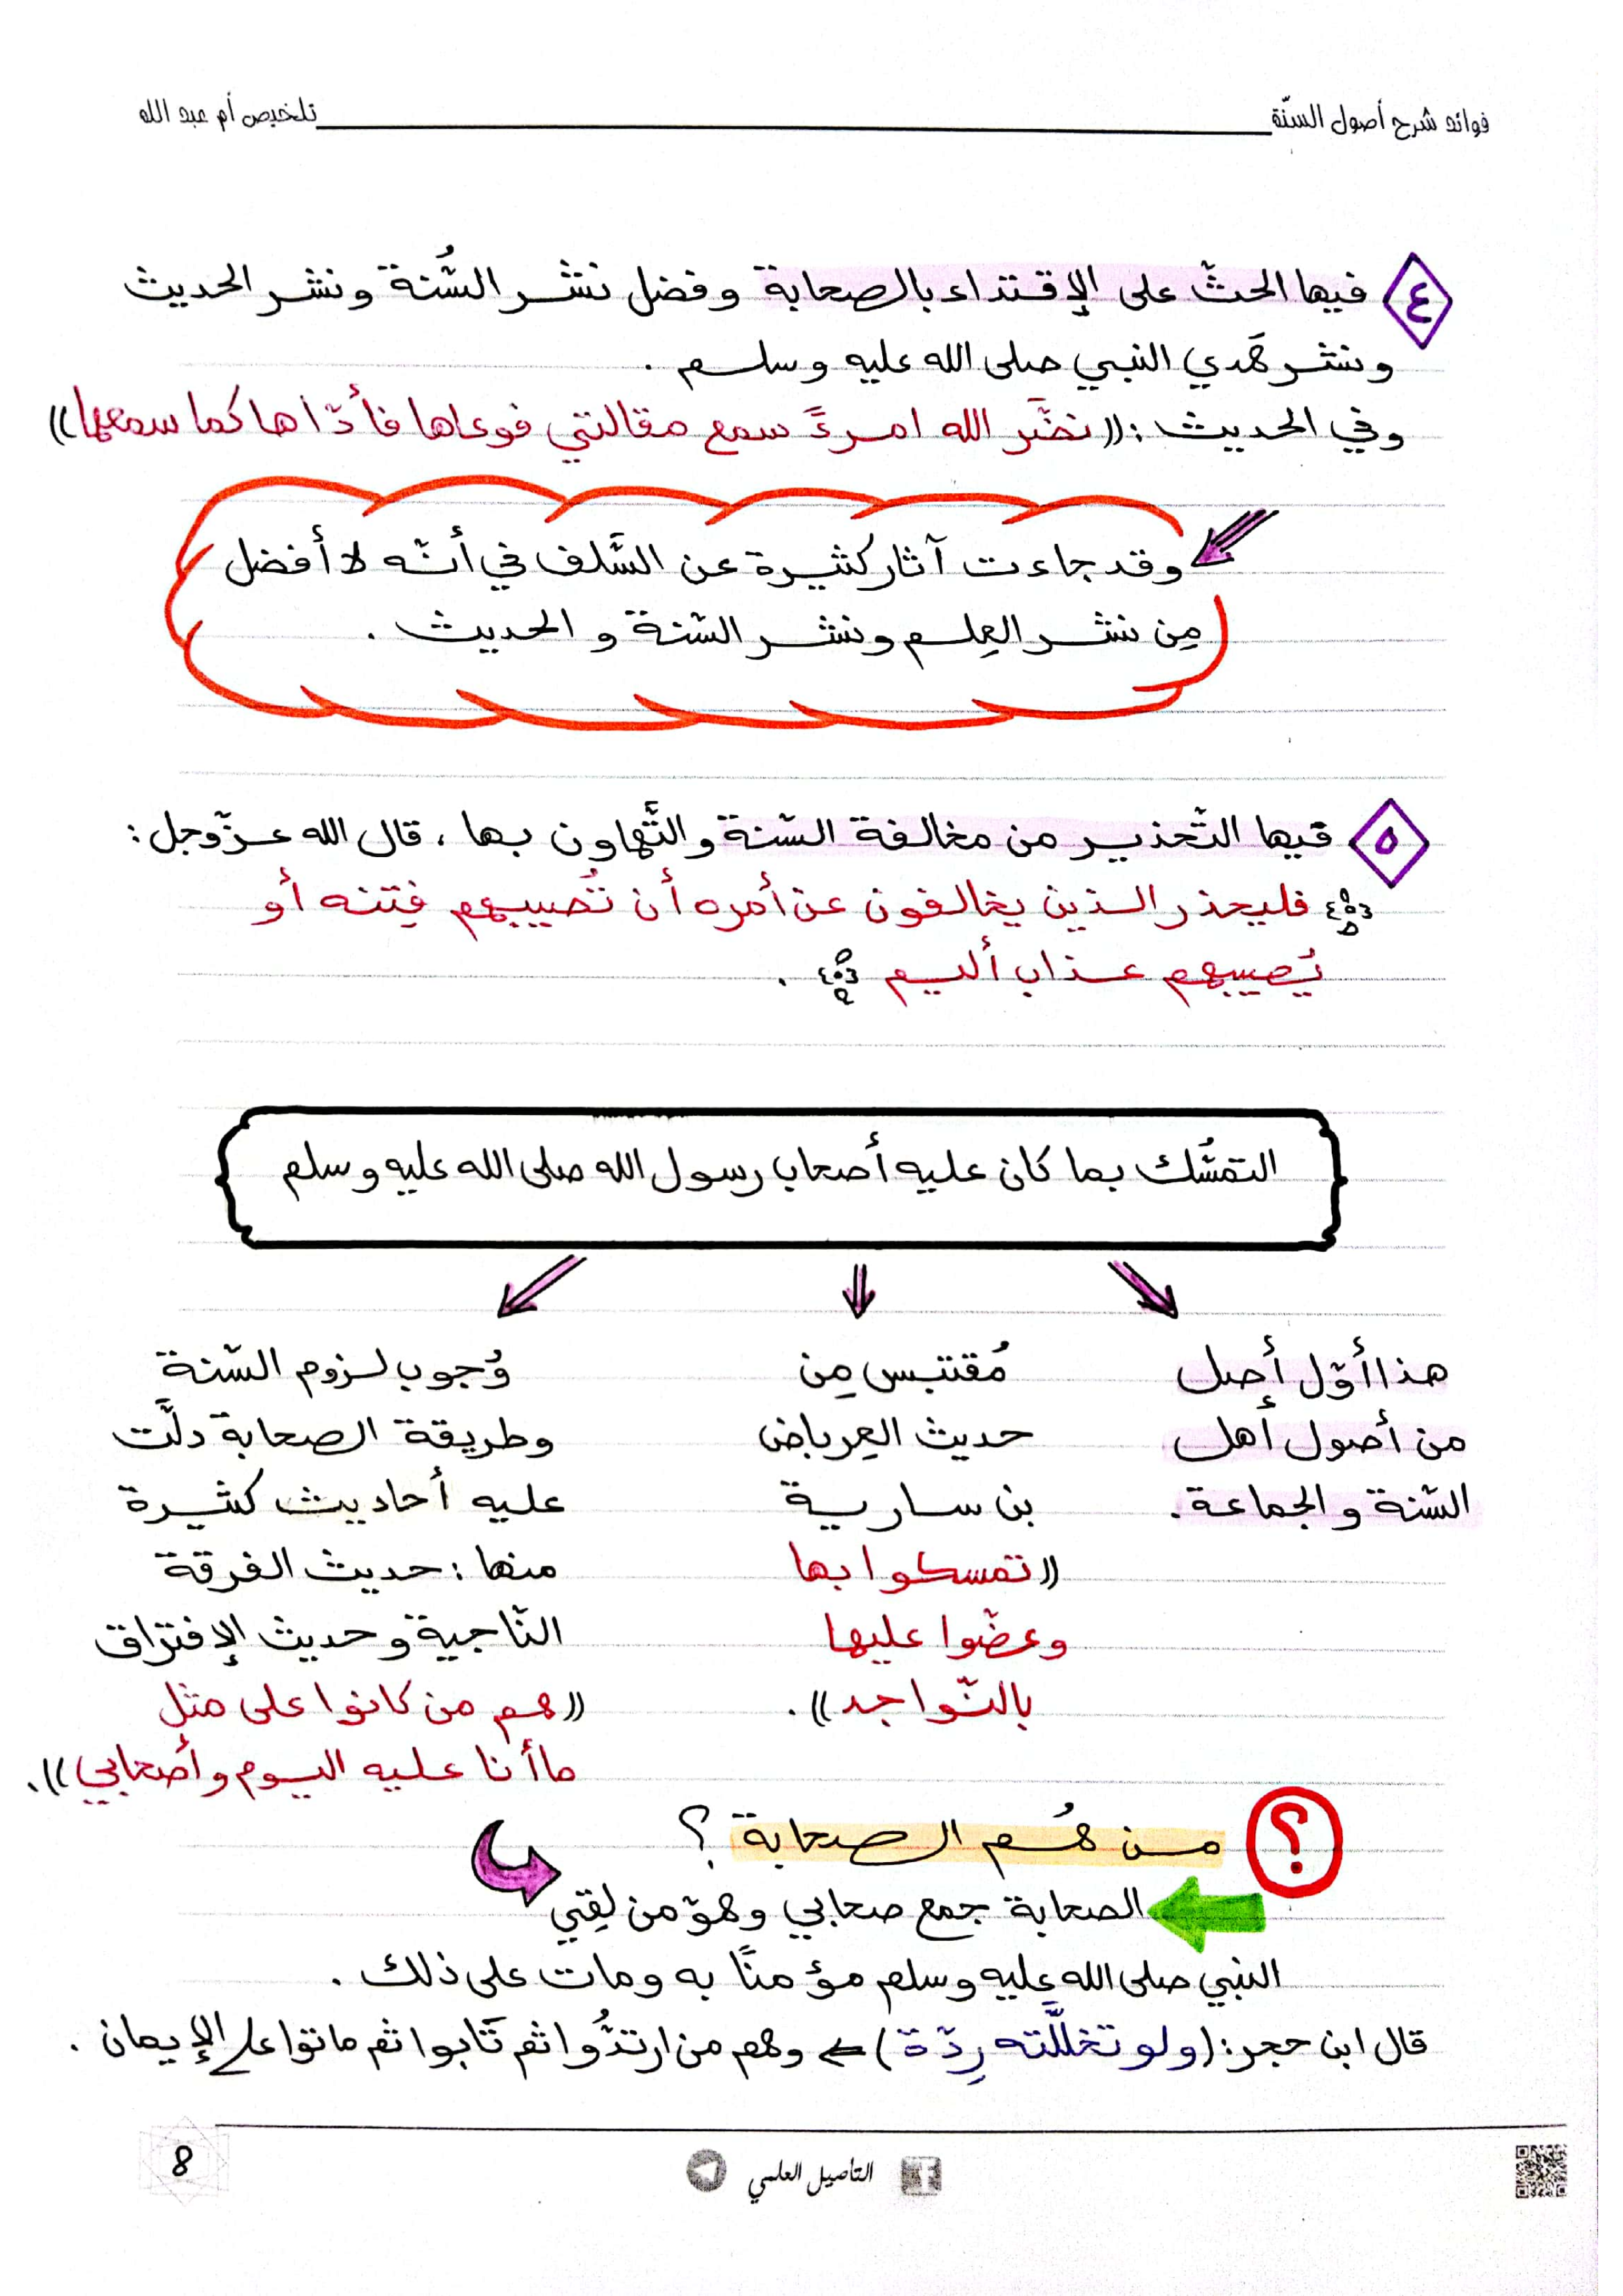 فوائد شرح أصول السنّة
تلخيص أم عبد الله
٤ فيها الحثّ على الإقتداء بالصحابة وفضل نشر السُّنة ونشر الحديث
ونشر هَدي النبي صلى الله عليه وسلم .
وفي الحديث : ((نضَّر الله امرءً سمع مقالتي فوعاها فأدّاها كما سمعها))
وقد جاءت آثار كثيرة عن السَّلف في أنّه لا أفضل
مِن نشر العِلم ونشر السّنة و الحديث .
٥ فيها التّحذير من مخالفة السّنة والتَّهاون بها ، قال الله عزّوجل :
فليحذر الذين يخالفون عن أمره أن تُصيبهم فِتنه أو
يُصيبهم عذاب أليم .
التمسُّك بما كان عليه أصحاب رسول الله صلى الله عليه وسلم
هذا أوّل أصل
من أصول أهل
السّنة والجماعة .
مُقتبس مِن
حديث العِرباض
بن سارية
((تمسكوا بها
وعضّوا عليها
بالنّواجد)) .
وُجوب لزوم السّنة
وطريقة الصحابة دلَّت
عليه أحاديث كثيرة
منها : حديث الفرقة
النّاجية وحديث الإفتراق
((هم من كانوا على مثل
ما أنا عليه اليوم وأصحابي)) .
؟ من هُم الصحابة ؟
الصحابة جمع صحابي وهوّ من لقِي
النبي صلى الله عليه وسلم مؤمنًا به ومات على ذلك .
قال ابن حجر : (ولو تخلَّلته رِدّة) ← وهم من ارتدُّوا ثم تَابوا ثم ماتوا على الإيمان .
التأصيل العلمي
8